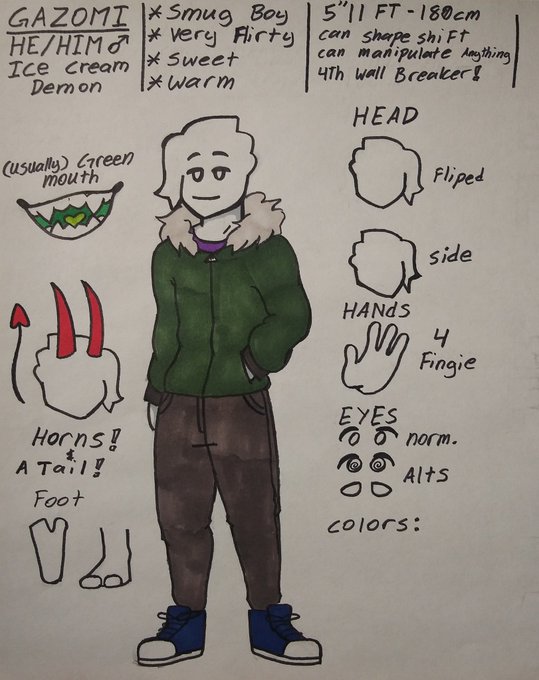 GAZOMI
HE/HIM ♂
Ice cream
Demon
* Smug Boy
* Very Flirty
* Sweet
* Warm
5"11 FT - 180cm
can shape shift
can manipulate Anything
4Th Wall Breaker!!
(usually) Green
mouth
HEAD
Fliped
side
HANdS
4
Fingie
EYES
norm.
Alts
colors:
Horns!!
&
A Tail!!
Foot